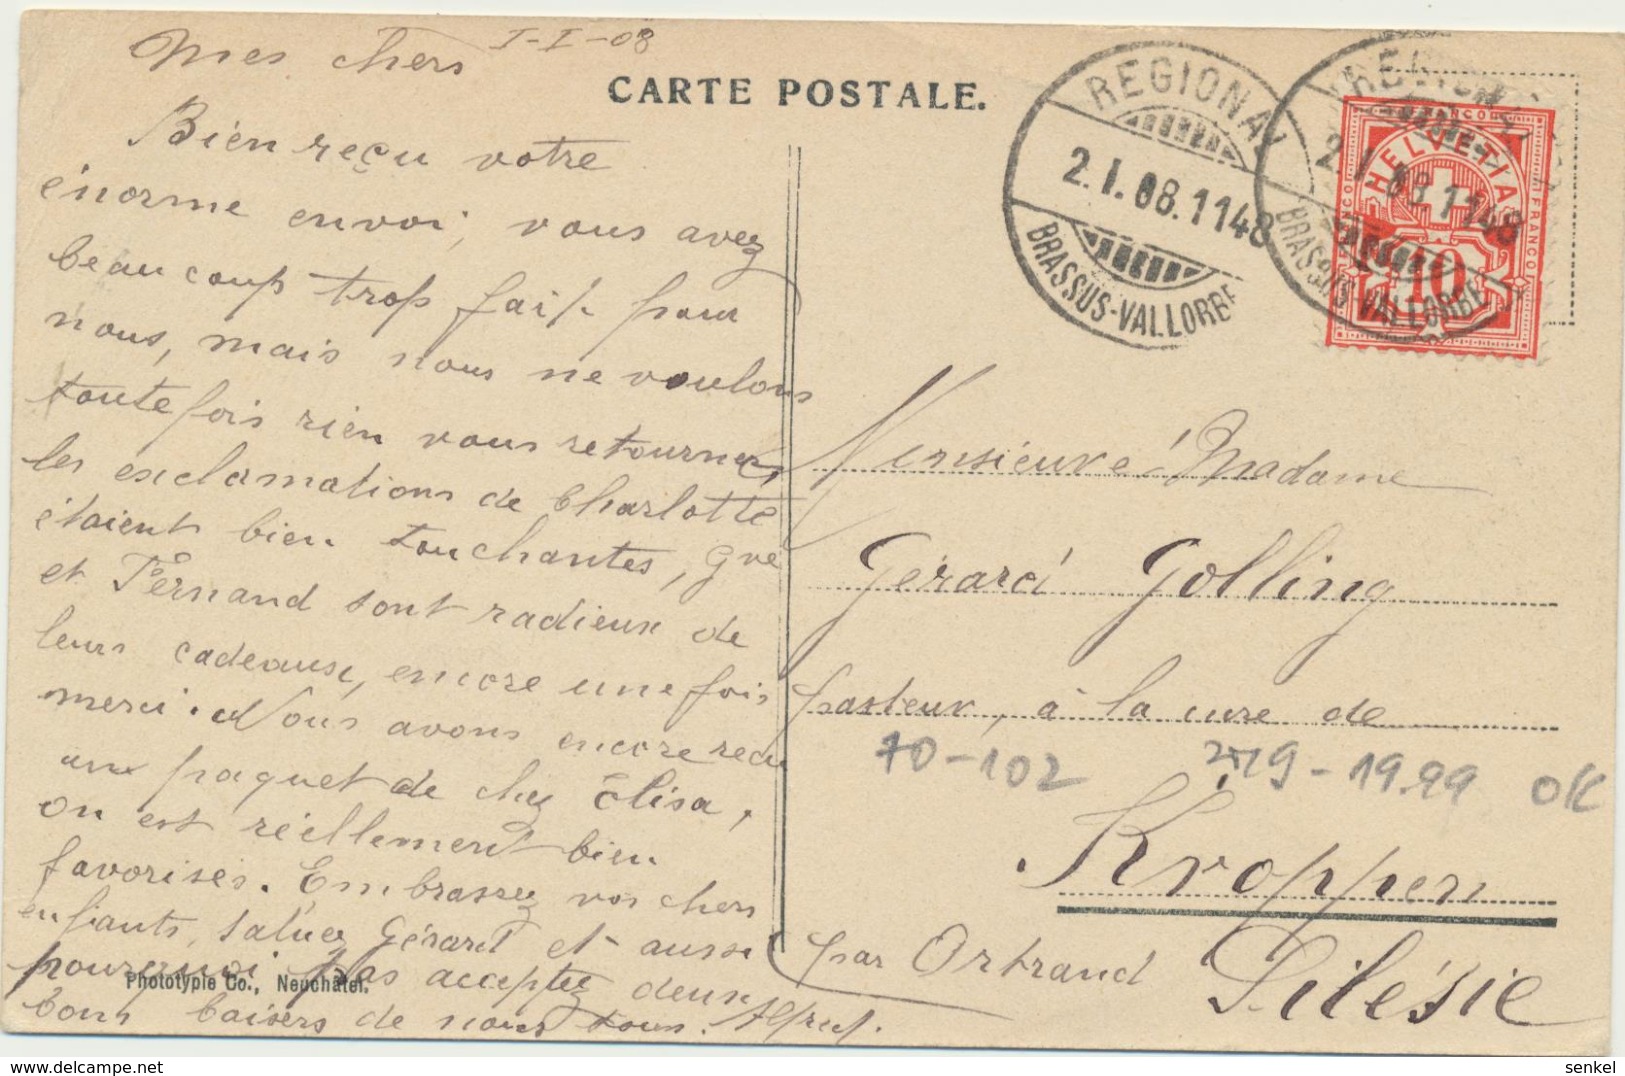 Mes chers I-I-08
CARTE POSTALE.
Bien reçu votre
énorme envoi, vous avez
beaucoup trop fait pour
nous, mais nous ne voulons
toutefois rien vous retourner,
les exclamations de Charlotte
étaient bien touchantes, Gve
et Fernand sont radieux de
leurs cadeaux, encore une fois
merci. Nous avons encore reçu
un paquet de chez Élisa,
on est réellement bien
favorisés. Embrassez vos chers
enfants, saluez Gérard et aussi
pourquoi pas acceptez deux
bons baisers de nous tous. Alfred.
Phototypie Co., Neuchâtel.
REGIONAL
2.I.08.1148
BRASSUS-VALLORBE
REGIONAL
2.I.08.1148
BRASSUS-VALLORBE
FRANCO
HELVETIA
FRANCO
10
Monsieur & Madame
Gérard Golling
pasteur, à la cure de
70-102 219-1999 OK
Kroppen
par Ortrand Silésie
senkel